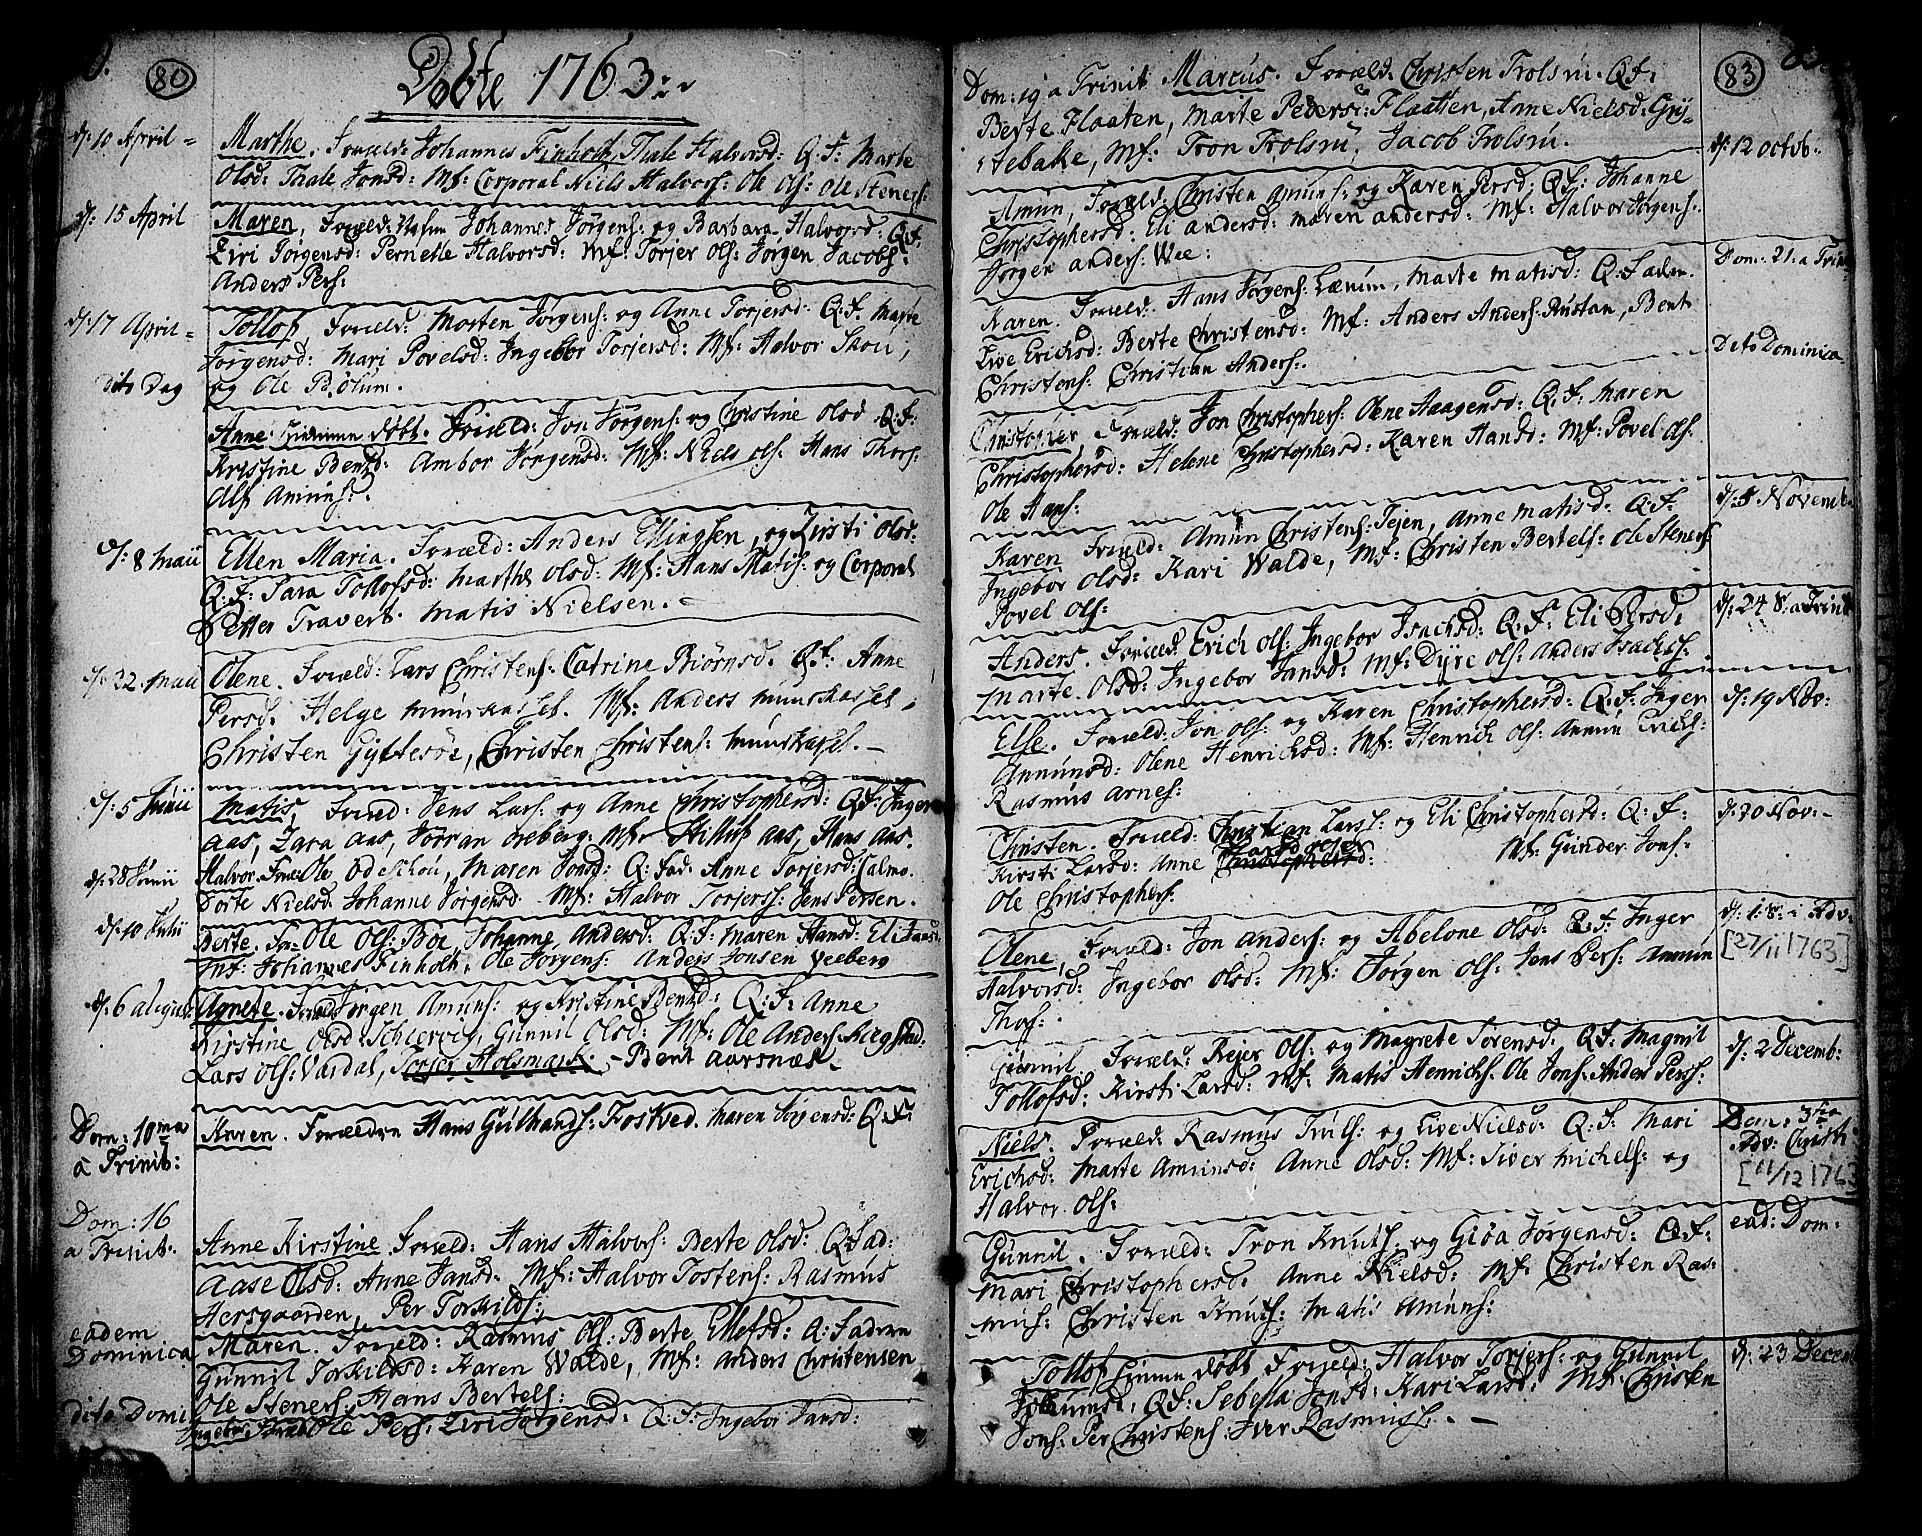 80
Døbte 1763
d: 10 April
Marthe. Foræld: Johannes Finholth, Thale Halvorsd: Q: F: Marte
Olsd: Thale Jonsd: Mf: Corporal Niels Halvors: Ole Ols: Ole Steners:
d: 15 April
Maren, Foræld: Johannes Jørgens: og Barbara Halvorsd: Q: F:
Ziri Jørgensd: Pernelle Halvorsd: Mf: Torjer Ols: Jørgen Jacobs:
Anders Pers:
d: 17 April
Tollof Foræld: Morten Jørgens: og Anne Torjersd: Q: F: Marie
Jørgensd: Mari Povelsd: Ingebor Torjersd: Mf: Halvor Skou,
og Ole Bølum.
dito Dag
Anne hiemme døbt. Foræld: Jon Jørgens: og Christine Olsd Q: F:
Kristine Bentsd: Ambor Jørgensd: Mf: Niels Ols: Hans Thors:
Alf Amuns:
d: 8 Maii
Ellen Maria. Foræld: Anders Ellingsen, og Kirsti Olsd:
Q: F: Sara Tollofsd: Marthe Olsd: Mf: Hans Matis: og Corporal
Petter Travert. Matis Nielsen.
d: 22 Maii
Olene. Foræld: Lars Christens: Catrine Biørnsd. Q: F: Anne
Persd: Helge Munskassel. Mf: Anders Munskassel,
Christen Gyltesøe, Christen Christens: Munskasel.
d: 5 Junii
Matis, Foræld: Jens Lars: og Anne Christophersd: Q: F: Inger
Aas, Zara Aas, Jørran Oreberg: Mf: Stilluf Aas, Hans Aas.
d: 28 Junii
Halvor. For: Ole Odeskou, Maren Jonsd: Q: Fad: Anne Torjersd: Calmo.
Dorte Nielsd: Johanne Jørgensd: Mf: Halvor Torjerss: Jens Persen.
d: 10 Julii
Berte. For: Ole Ols: Böe, Johanne Andersd: Q: F: Maren Hansd: Eli
Mf: Johannes Finholth, Ole Jørgens: Anders Jonsen Veeberg
d: 6 August
Agnete. Foræld: Jørgen Amuns: og Kristine Bentsd: Q: F: Anne
Kirstine Olsd: Schiervig, Gunnil Olsd: Mf: Ole Anders:
Lars Ols: Vardal, Torjer Holsmark. Bent Aarsnæs.
Dom: 10ma
a Trinit:
Karen. Forældre Hans Gulbrands: Foskved. Maren Jørgensd: Q: F:
Dom: 16
a Trinit:
Anne Kirstine Foræld: Hans Halvors: Berte Olsd: Q: Fad:
Aase Olsd: Anne Jansd: Mf: Halvor Tostens: Rasmus
Hersgaarden, Per Torkilds:
eadem
Dominica
Maren. Foræld: Rasmus Ols: Berte Ellefsd: Q: Faddere
Gunnil Torkildsd: Karen Walde, Mf: Anders Christensen
Ole Steners: Hans Bertels:
dito Domi
Ingebor. Foræld: Ole Pers: Ziri Jørgensd: Q: F: Ingebor Jansd:
83
Dom: 19 a Trinit. Marcus. Foræld. Christen Trolsru. Q: F:
Berte Flaaten, Marte Peders: Flaatten, Anne Nielsd: Gry-
stebake, Mf: Tron Trolsru, Jacob Trolsru.
d: 12 octob:
Amun, Foræld: Christen Amuns: og Karen Persd: Q: F: Johanne
Christophersd: Eli Andersd: Maren Andersd: Mf: Halvor Jørgens:
Jørgen Anders: Wee:
Dom: 21. a Trin
Karen. Foræld: Hans Jørgens: Lænum, Marte Matisd: Q: Fadere.
Live Erichsd: Berte Christensd: Mf: Anders Anders: Rustan, Bent
Christens: Christian Anders:
Deto Dominica
Christopher, Foræld: Jon Christophers: Olene Haagensd: Q: F: Maren
Christophersd: Helene Christophersd: Karen Hansd: Mf: Povel Ols:
Ole Hans:
d: 5 Novemb.
Karen Foræld: Amun Christens: Tejen, Anne Matisd: Q: F:
Ingebor Olsd: Kari Walde, Mf: Christen Bertels: Ole Steners:
Povel Ols:
d: 24 S: a Trinit
Anders. Foræld: Erich Ols: Ingebor Isachsd: Q: F: Eli Persd:
Marte Olsd: Ingebor Jansd: Mf: Dyre Ols: Anders Isachs:
d: 19 Nov:
Else. Foræld: Jon Ols: og Karen Christophersd: Q: F: Inger
Amunsd: Olene Henrichsd: Mf: Henrich Ols: Amun
Rasmus Arnes:
d: 20 Nov:
Christen. Foræld: Christian Larss: og Eli Christophersd: Q: F:
Kirsti Larsd: Anne Christophersd: Mf: Gunder Jons:
Ole Christophers:
d: 1: S: i Adv:
[27/11 1763]
Olene, Foræld: Jon Anders: og Abelone Olsd: Q: F: Inger
Halvorsd: Ingebor Olsd: Mf: Jørgen Ols: Jens Pers: Ammun
Thos:
d: 2 Decemb:
Gunnil. Foræld: Rejer Ols: og Magrete Sørensd: Q: F: Magnil
Tollofsd: Kirsti Larsd: Mf: Matis Henrichs: Ole Jons: Anders Pers:
Dom: 3tia
Adv: Christi
[11/12 1763
Niels. Foræld: Rasmus Truls: og Live Nielsd: Q: F: Mari
Erichsd: Marte Amunsd: Anne Olsd: Mf: Siver Michels: og
Halvor Ols:
ead: Dom:
Gunnil. Foræld: Tron Knuts: og Gioa Jørgensd: Q: F:
Mari Christophersd: Anne Nielsd: Mf: Christen Ras-
mus: Christen Knuts: Matis Amuns:
d: 23 Decem
Tollof hiemme døbt Foræld: Halvor Torjers: og Gunnil
Q: F: Sebella Jonsd: Kari Larsd: Mf: Christen
Jons: Per Christens: Iver Rasmuss.